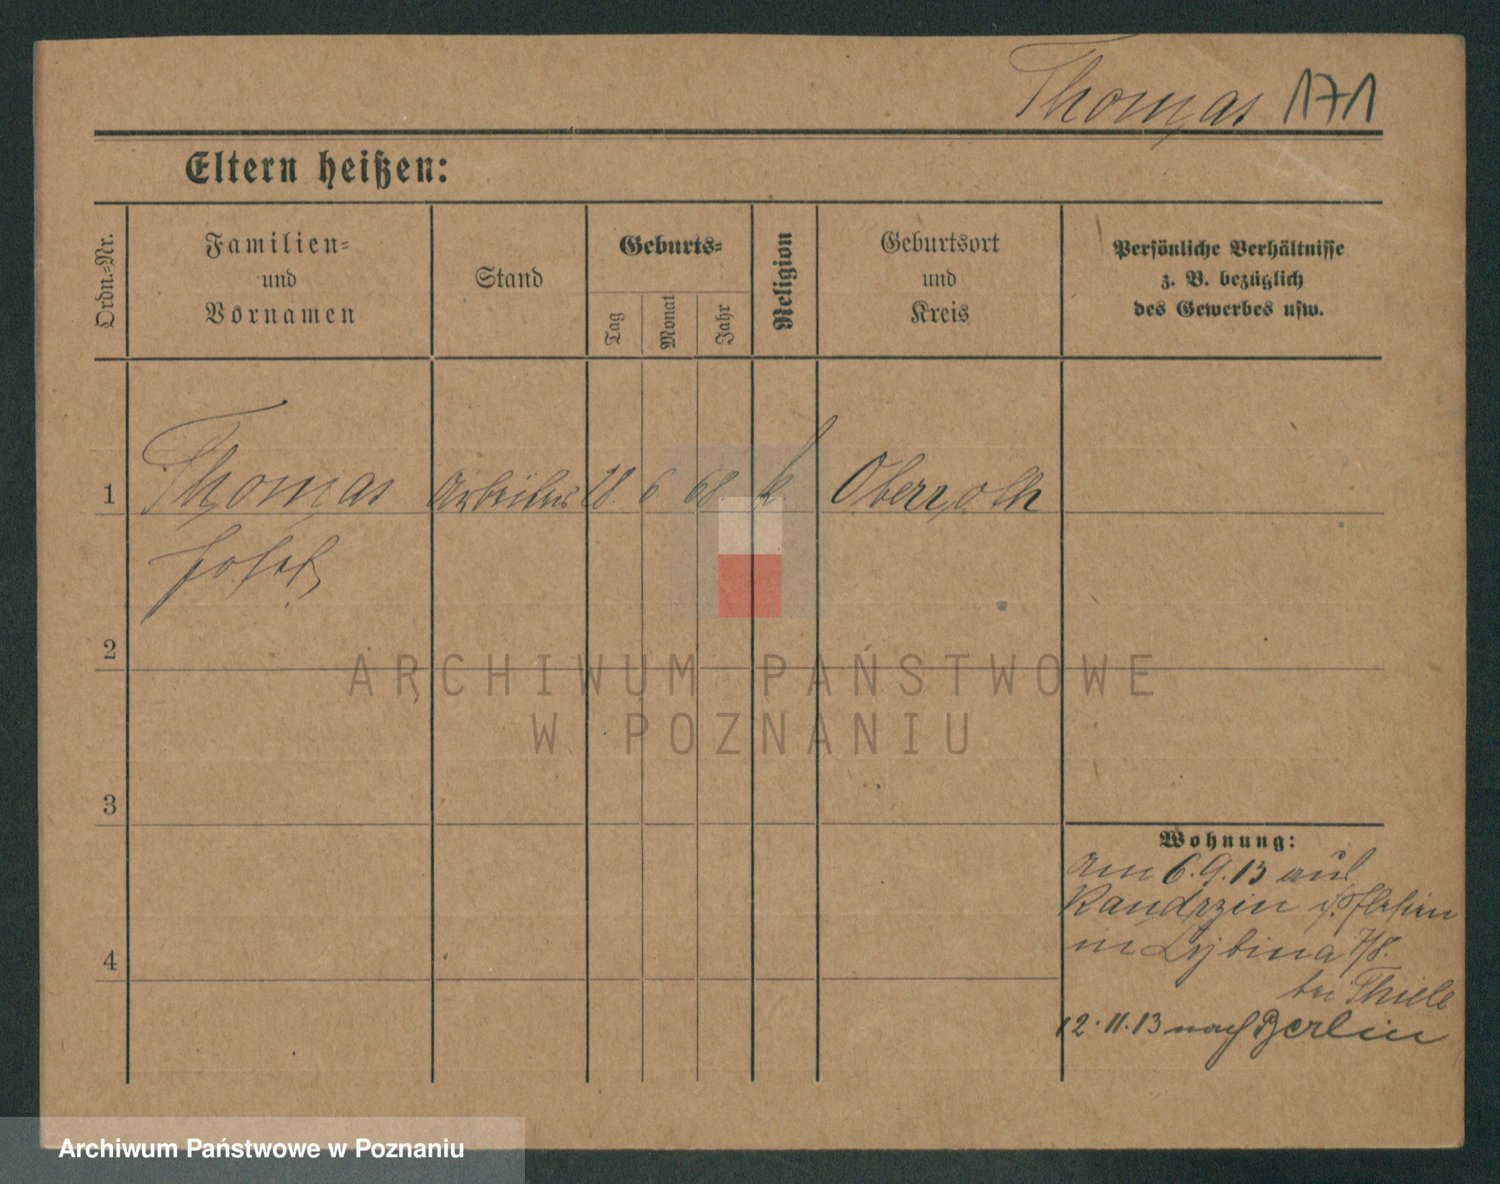 Thomas 171
Eltern heißen:
Ordn.-Nr.
Familien-
und
Vornamen
Stand
Geburts-
Tag
Monat
Jahr
Religion
Geburtsort
und
Kreis
Persönliche Verhältnisse
z. B. bezüglich
des Gewerbes usw.
1 Thomas Arbeiter 28 6 68 k Oberroth
Josef
2
3
4
Wohnung:
Am 6.9.13 aus
Kandrzin
in Lybina 7/8.
bei Thiele
12.11.13 nach Berlin
ARCHIWUM PAŃSTWOWE
W POZNANIU
Archiwum Państwowe w Poznaniu